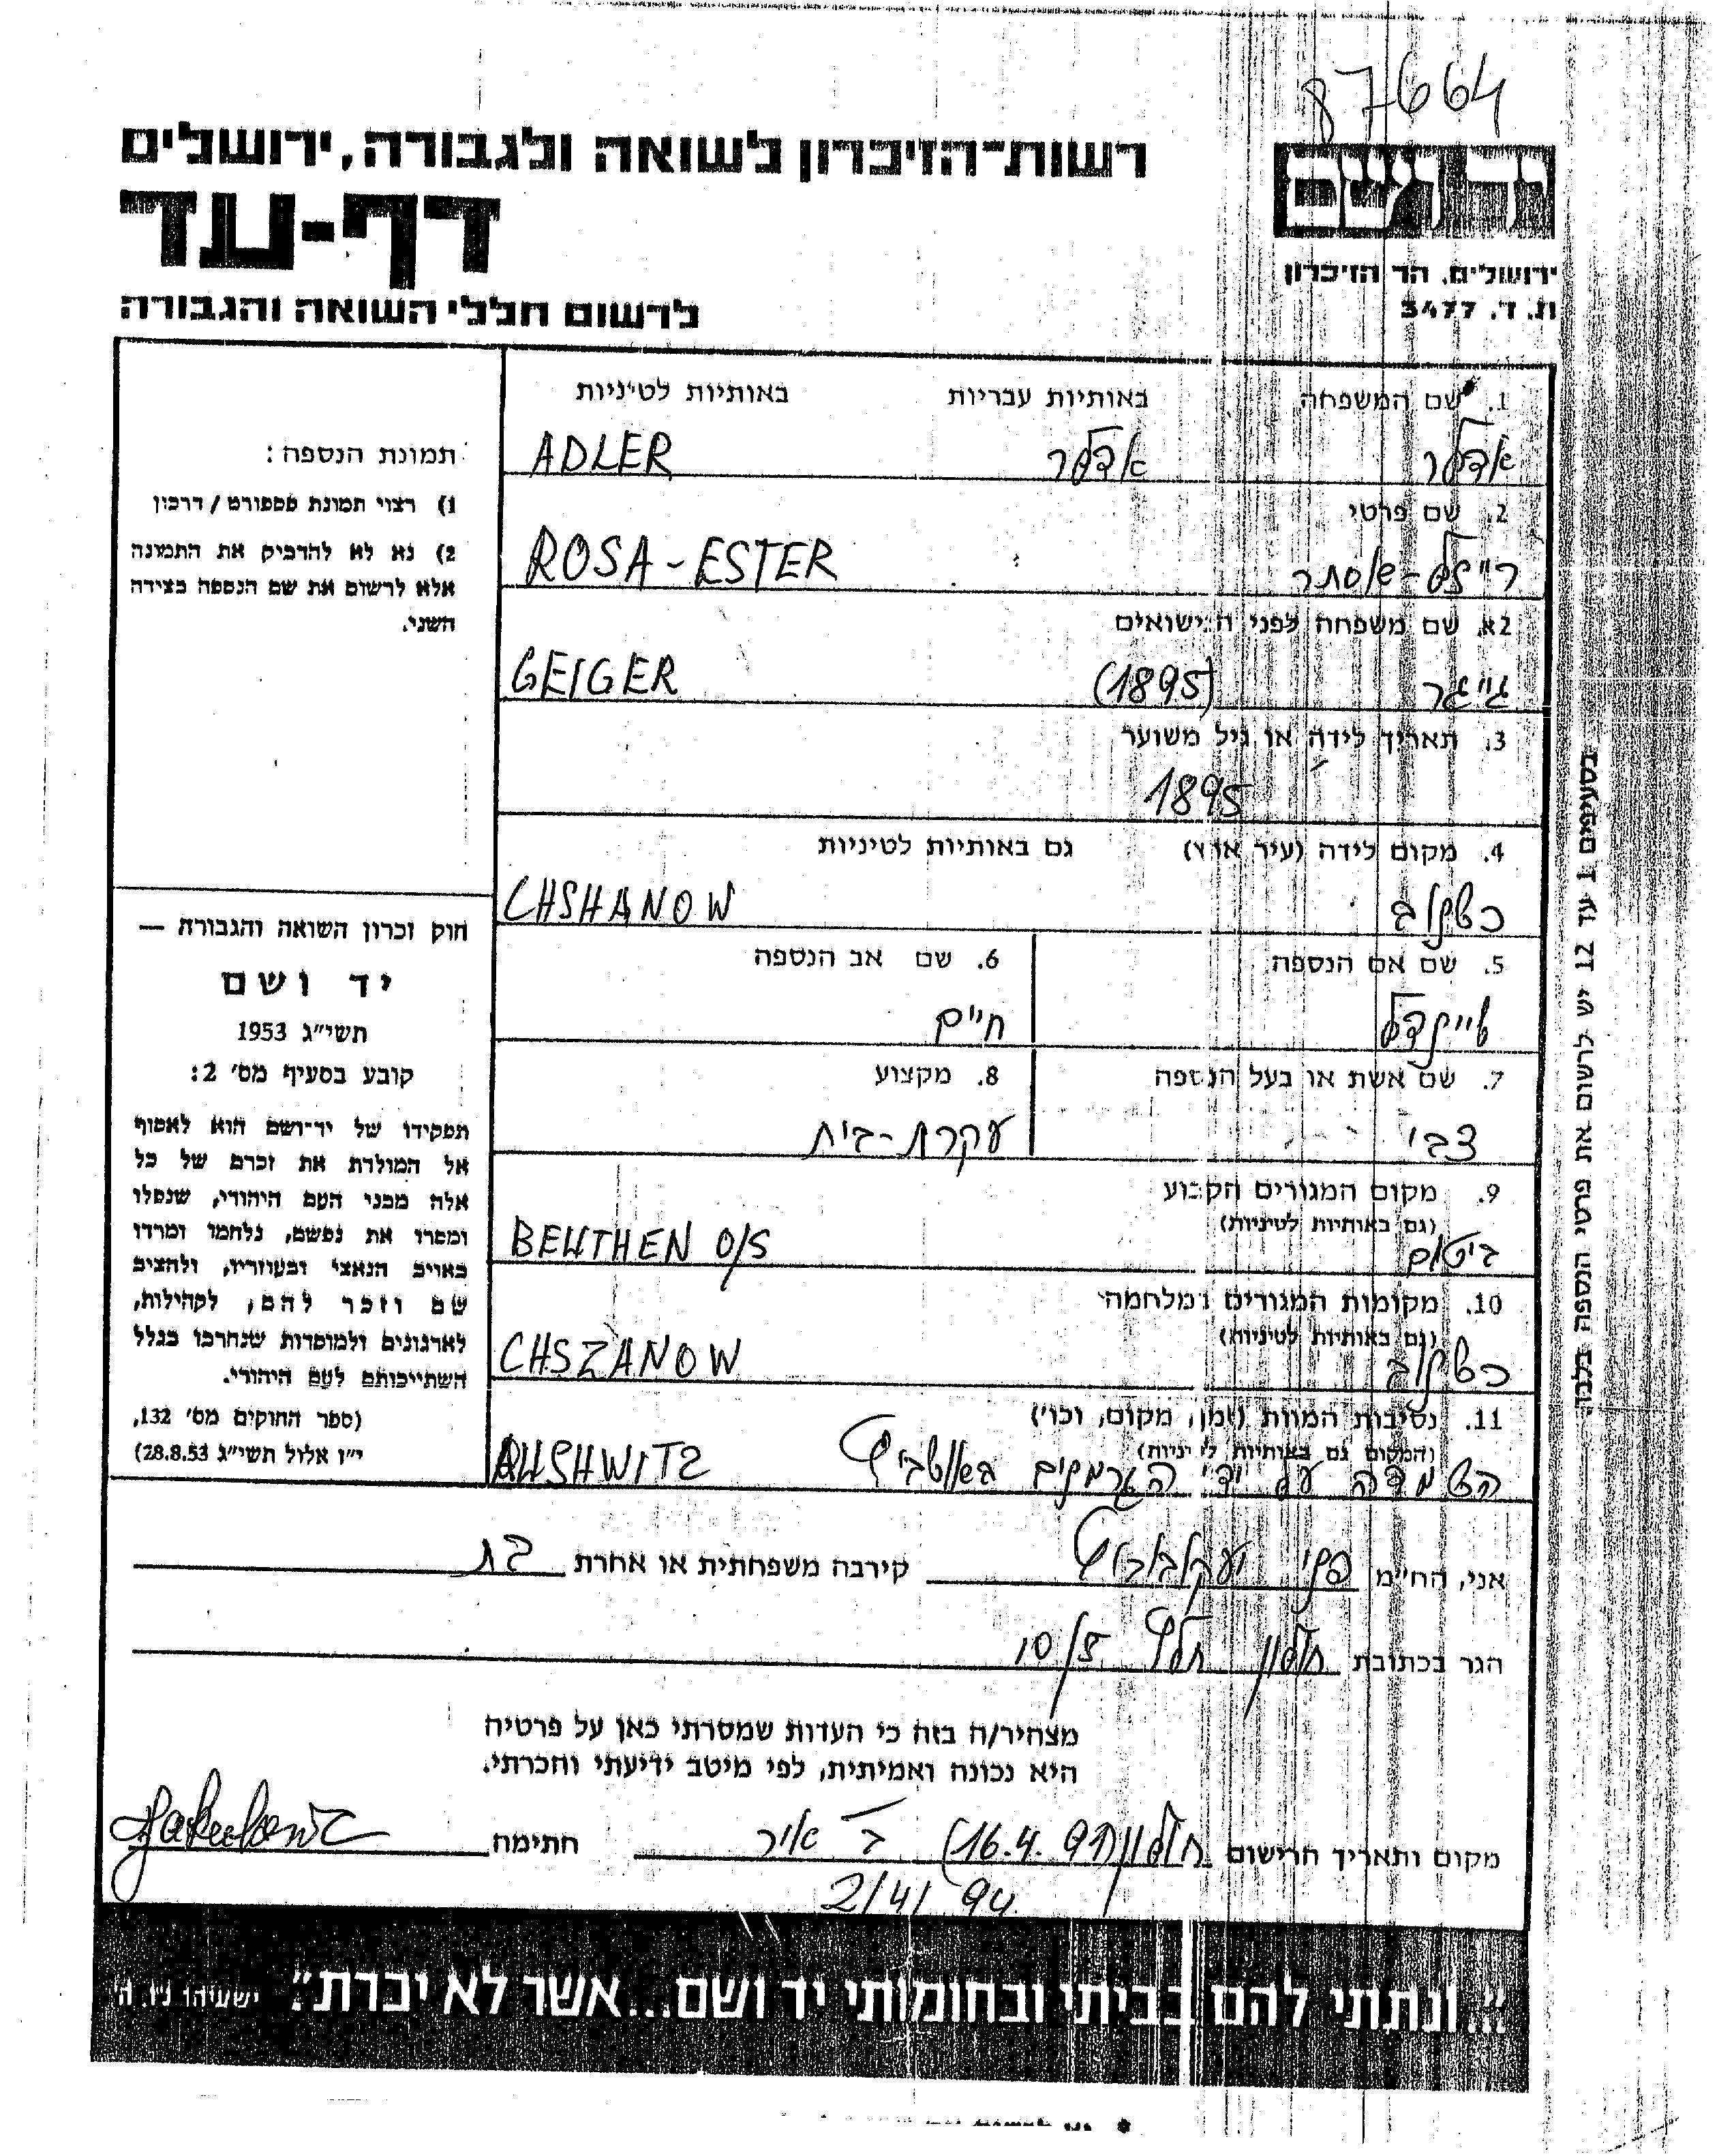 87664
רשות־הזיכרון לשואה ולגבורה, ירושלים
יד ושם
דף-עד
ירושלים, הר הזיכרון
ת. ד. 3477
לרשום חללי השואה והגבורה
1. שם המשפחה באותיות עבריות באותיות לטיניות
אדלר אדלר ADLER
2. שם פרטי
רייזל-אסתר ROSA-ESTER
2א. שם משפחה לפני הנישואים
גייגר (1895) GEIGER
3. תאריך לידה או גיל משוער
1895
4. מקום לידה (עיר ארץ) גם באותיות לטיניות
כשנוב CHSHANOW
5. שם אם הנספה 6. שם אב הנספה
שיינדל חיים
7. שם אשת או בעל הנספה 8. מקצוע
צבי עקרת-בית
9. מקום המגורים הקבוע
(גם באותיות לטיניות)
ביטום BEUTHEN O/S
10. מקומות המגורים במלחמה
(גם באותיות לטיניות)
כשנוב CHSZANOW
11. נסיבות המוות (זמן, מקום, וכו')
(המקום גם באותיות לטיניות)
השמדה על ידי הגרמנים באושביץ AUSHWITZ
תמונת הנספה:
1) רצוי תמונת פספורט / דרכון
2) נא לא להדביק את התמונה
אלא לרשום את שם הנספה בצידה
השני.
חוק זכרון השואה והגבורה —
יד ושם
תשי״ג 1953
קובע בסעיף מס׳ 2:
תפקידו של יד־ושם הוא לאסוף
אל המולדת את זכרם של כל
אלה מבני העם היהודי, שנפלו
ומסרו את נפשם, נלחמו ומרדו
באויב הנאצי ובעוזריו, ולהציב
שם וזכר להם, לקהילות,
לארגונים ולמוסדות שנחרבו בגלל
השתייכותם לעם היהודי.
(ספר החוקים מס׳ 132,
י״ז אלול תשי״ג 28.8.53)
בסעיפים 1 עד 12 יש לרשום את פרטי הנספה בלבד.
אני, הח״מ פני יעקובוביץ קירבה משפחתית או אחרת בת
הגר בכתובת חולון 10/5
מצהיר/ה בזה כי העדות שמסרתי כאן על פרטיה
היא נכונה ואמיתית, לפי מיטב ידיעתי והכרתי.
מקום ותאריך הרישום חולון (16.4.91) ב׳ אייר חתימה
2/4/94
״...ונתתי להם בביתי ובחומותי יד ושם...אשר לא יכרת״. ישעיהו נ״ו, ה׳